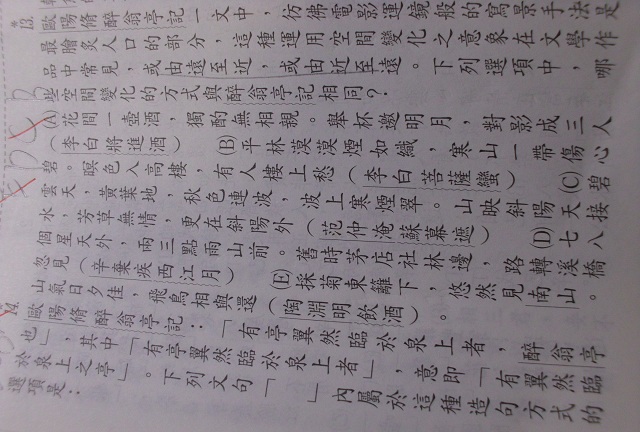 *13.歐陽脩醉翁亭記一文中，彷彿電影運鏡般的寫景手法是
最膾炙人口的部分，這種運用空間變化之意象在文學作
品中常見，或由遠至近，或由近至遠。下列選項中，哪
些空間變化的方式與醉翁亭記相同？
(A)花間一壺酒，獨酌無相親。舉杯邀明月，對影成三人
(李白將進酒) (B)平林漠漠煙如織，寒山一帶傷心
碧。暝色入高樓，有人樓上愁(李白菩薩蠻) (C)碧
雲天，黃葉地，秋色連波，波上寒煙翠。山映斜陽天接
水，芳草無情，更在斜陽外(范仲淹蘇幕遮) (D)七八
個星天外，兩三點雨山前。舊時茅店社林邊，路轉溪橋
忽見(辛棄疾西江月) (E)採菊東籬下，悠然見南山。
山氣日夕佳，飛鳥相與還(陶淵明飲酒)。
14.歐陽脩醉翁亭記：「有亭翼然臨於泉上者，醉翁亭
也」，其中「有亭翼然臨於泉上者」，意即「有翼然臨
於泉上之亭」。下列文句「 」內屬於這種造句方式的
選項是：